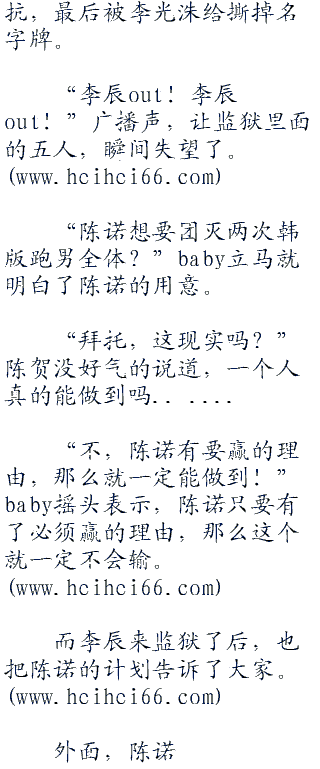 抗，最后被李光洙给撕掉名
字牌。
“李辰out！李辰
out！”广播声，让监狱里面
的五人，瞬间失望了。
(www.hcihci66.com)
“陈诺想要团灭两次韩
版跑男全体？”baby立马就
明白了陈诺的用意。
“拜托，这现实吗？”
陈贺没好气的说道，一个人
真的能做到吗.. ....
“不，陈诺有要赢的理
由，那么就一定能做到！”
baby摇头表示，陈诺只要有
了必须赢的理由，那么这个
就一定不会输。
(www.hcihci66.com)
而李辰来监狱了后，也
把陈诺的计划告诉了大家。
(www.hcihci66.com)
外面，陈诺